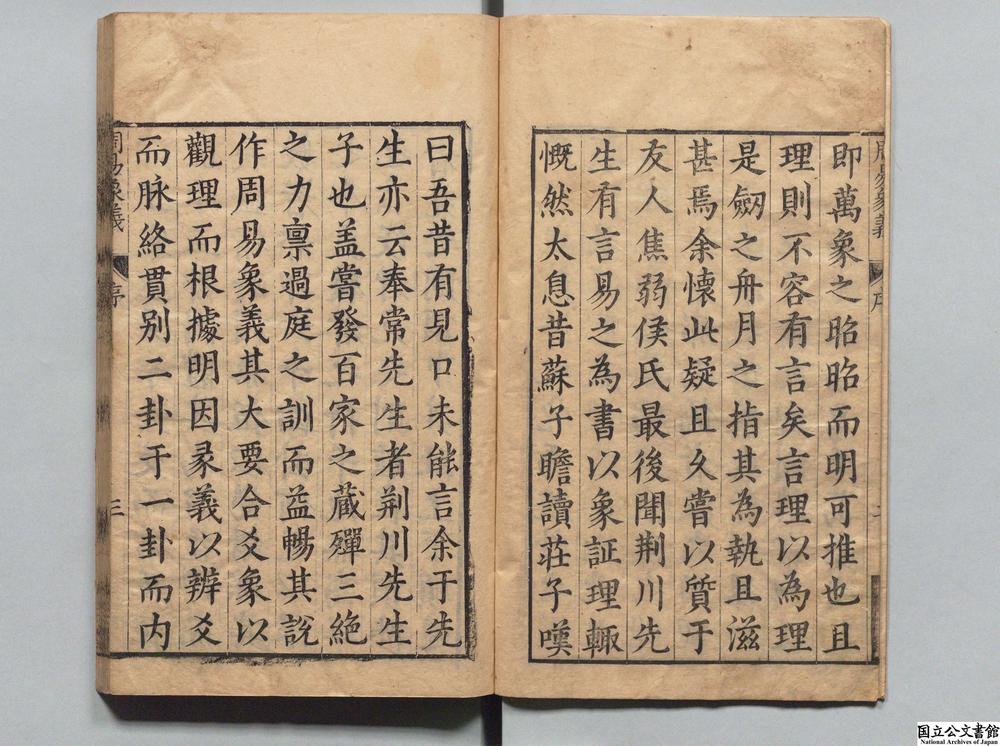 即萬象之昭昭而明可推也且
理則不容有言矣言理以為理
是劒之舟月之指其為執且滋
甚焉余懷此疑且久嘗以質于
友人焦弱侯氏最後聞荆川先
生有言易之為書以象証理輙
慨然太息昔蘇子瞻讀莊子嘆
曰吾昔有見口未能言余于先
生亦云奉常先生者荆川先生
子也盖嘗發百家之藏殫三絶
之力禀過庭之訓而益暢其說
作周易象義其大要合爻象以
觀理而根據明因彖義以辨爻
而脉絡貫别二卦于一卦而内
周易象義
序
三
国立公文書館
National Archives of Japan